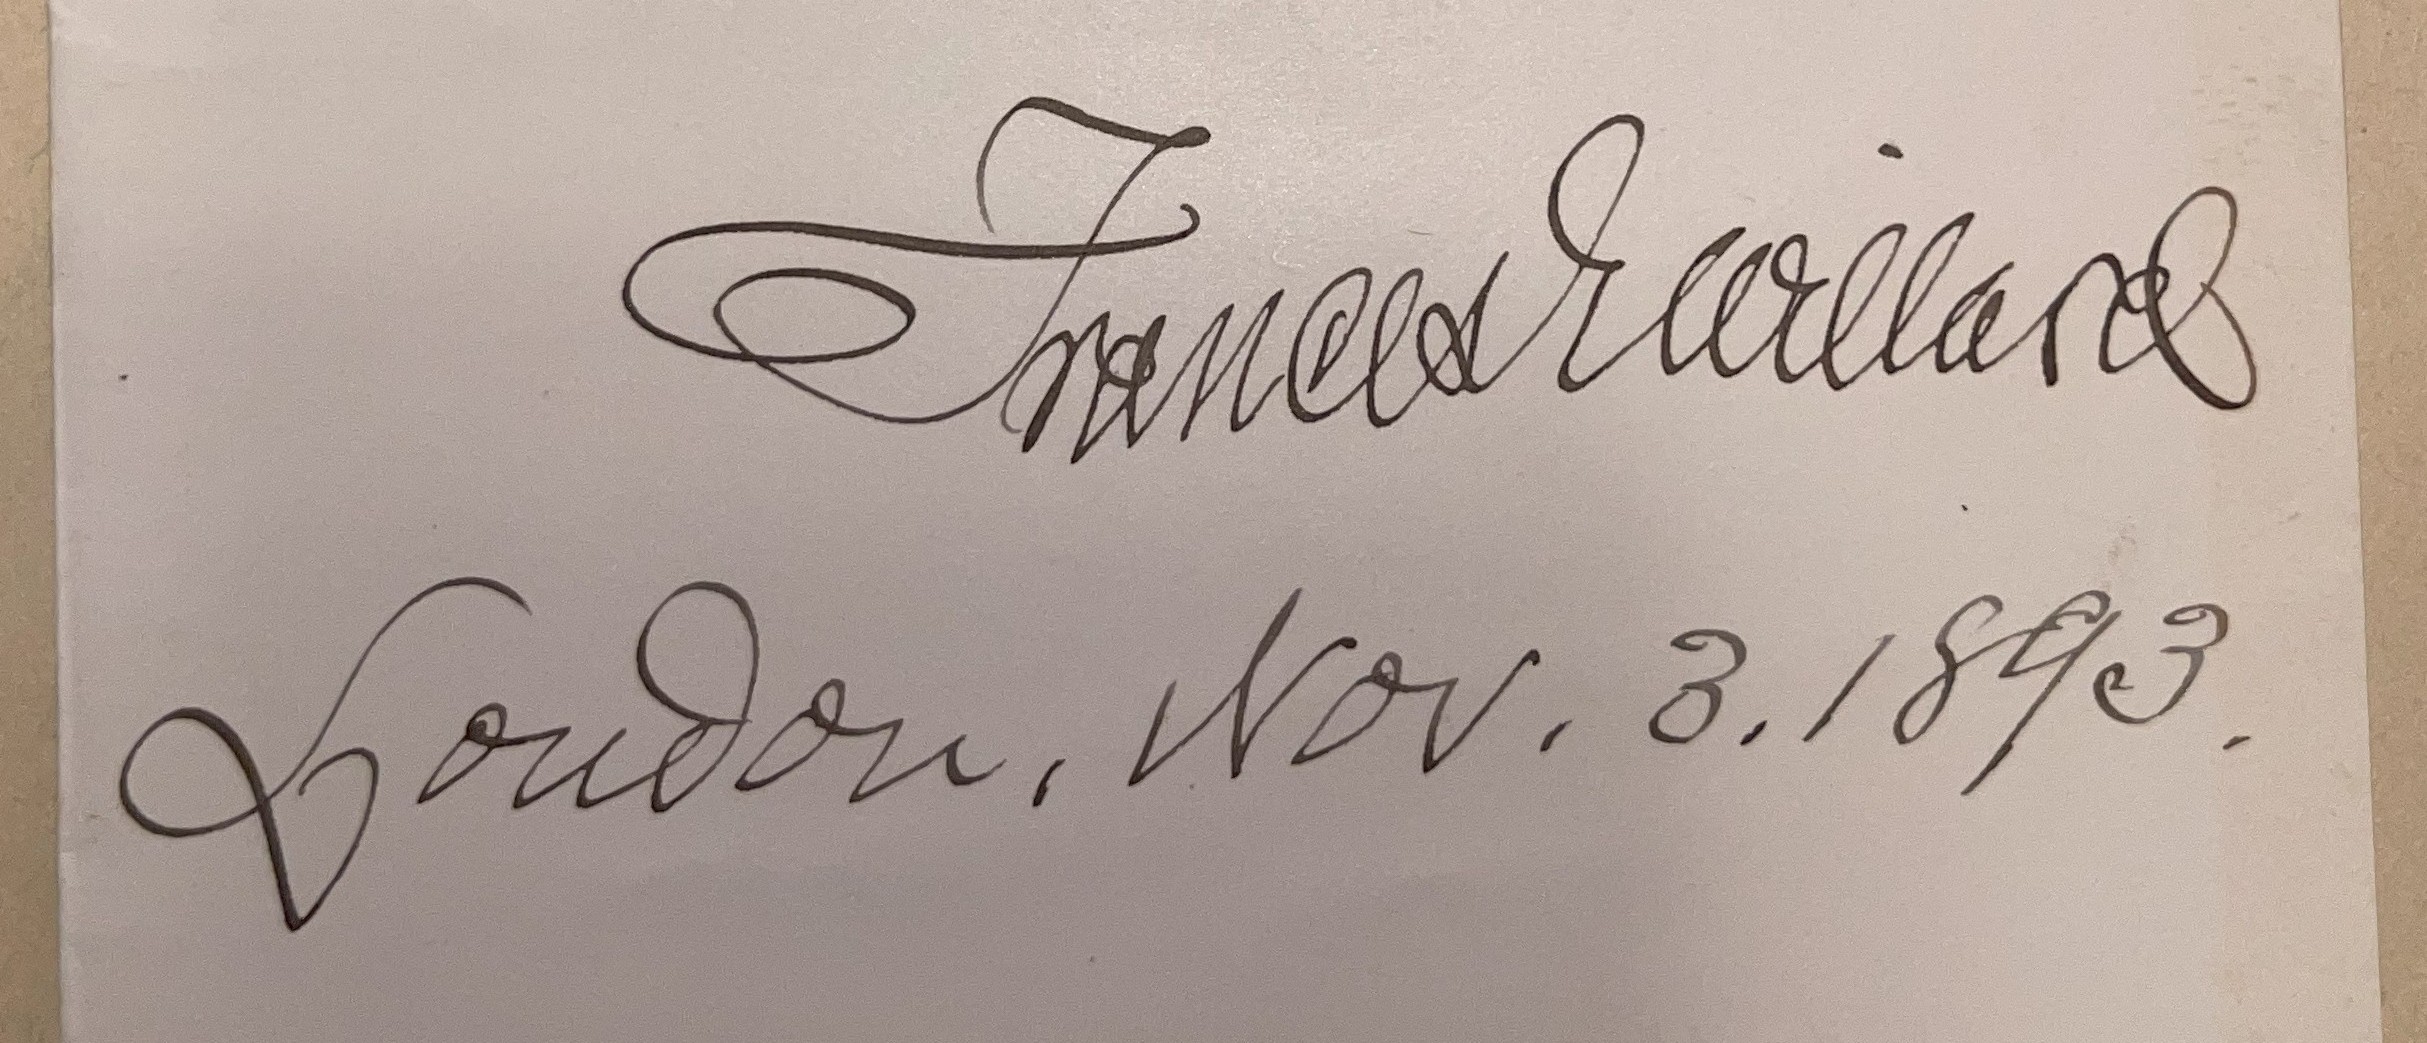 Frances E Willard
London, Nov. 3. 1893.